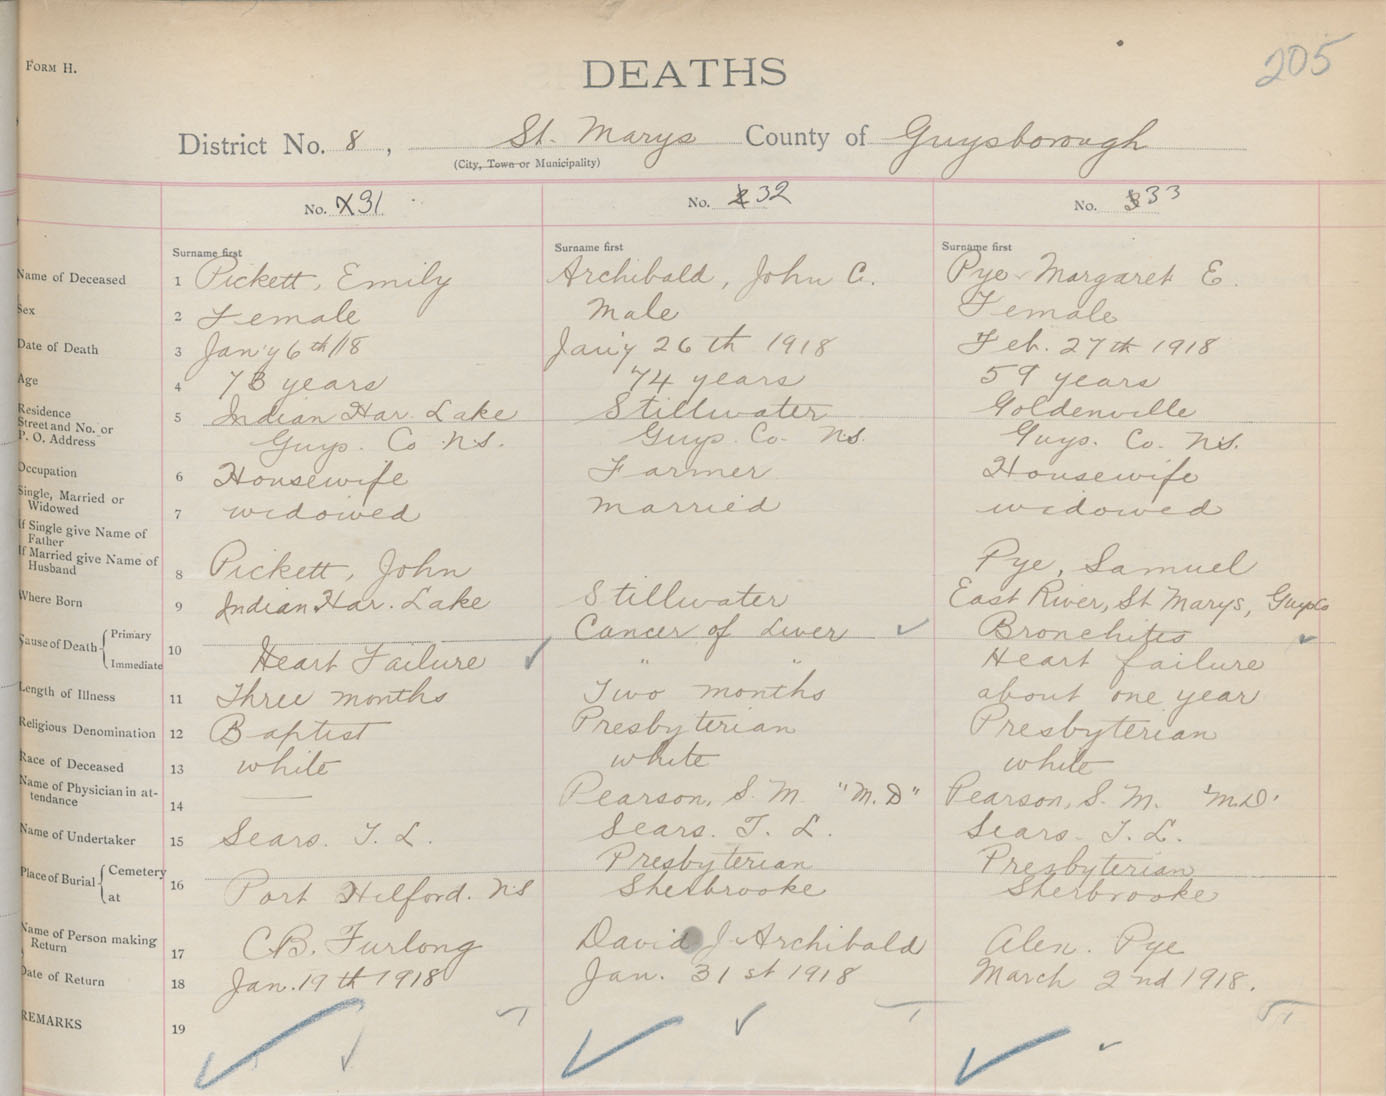 205
FORM H.
DEATHS
District No. 8, St. Marys County of Guysborough
(City, Town or Municipality)
No. 31 No. 32 No. 33
Surname first Surname first Surname first
Name of Deceased 1 Pickett, Emily Archibald, John C. Pye Margaret E.
Sex 2 Female Male Female
Date of Death 3 Jan'y 6th/18 Jan'y 26th 1918 Feb. 27th 1918
Age 4 73 years 74 years 59 years
Residence Street and No. or P. O. Address 5 Indian Har. Lake Stillwater Goldenville
Guys. Co N.S. Guys. Co. N.S. Guys. Co. N.S.
Occupation 6 Housewife Farmer Housewife
Single, Married or Widowed 7 widowed married widowed
If Single give Name of Father
If Married give Name of Husband 8 Pickett, John Pye, Samuel
Where Born 9 Indian Har. Lake Stillwater East River, St Marys, Guys Co
Cause of Death { Primary Cancer of Liver Bronchitis
Immediate 10 Heart Failure " " Heart failure
Length of Illness 11 Three months Two months about one year
Religious Denomination 12 Baptist Presbyterian Presbyterian
Race of Deceased 13 white white white
Name of Physician in attendance 14 — Pearson, S. M. "M.D" Pearson, S. M. 'M.D'
Name of Undertaker 15 Sears. T. L. Sears. T. L. Sears. T. L.
Place of Burial { Cemetery Presbyterian Presbyterian
at 16 Port Hilford. N.S Sherbrooke Sherbrooke
Name of Person making Return 17 C.B. Furlong David J. Archibald Alen. Pye
Date of Return 18 Jan. 19th 1918 Jan. 31st 1918 March 2nd 1918.
REMARKS 19